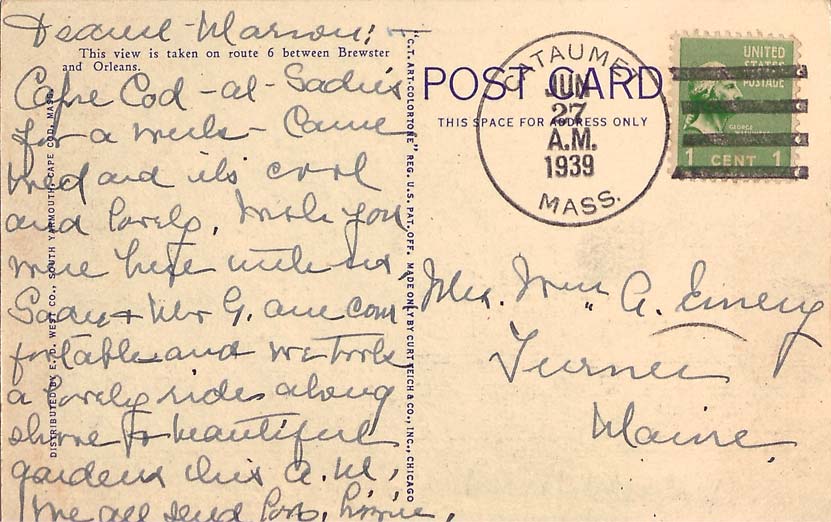 Dearest Marion;-
This view is taken on route 6 between Brewster
and Orleans.
Cape Cod - at - Sadie's
for a week - Came
Wed and it's cool
and lovely. Wish you
were here with us,
Sadie + Mr G. are com
fortable and we took
a lovely ride along
shore to beautiful
gardens this A.M.
We all send love, Lizzie.
DISTRIBUTED BY E. D. WEST CO., SOUTH YARMOUTH, CAPE COD, MASS.
"C.T. ART-COLORTONE" REG. U.S. PAT. OFF. MADE ONLY BY CURT TEICH & CO., INC., CHICAGO
POST CARD
THIS SPACE FOR ADDRESS ONLY
CATAUMET
JUN
27
A.M.
1939
MASS.
UNITED
STATES
POSTAGE
GEORGE
WASHINGTON
1 CENT 1
Mrs. Wm A. Emery
Turner
Maine.